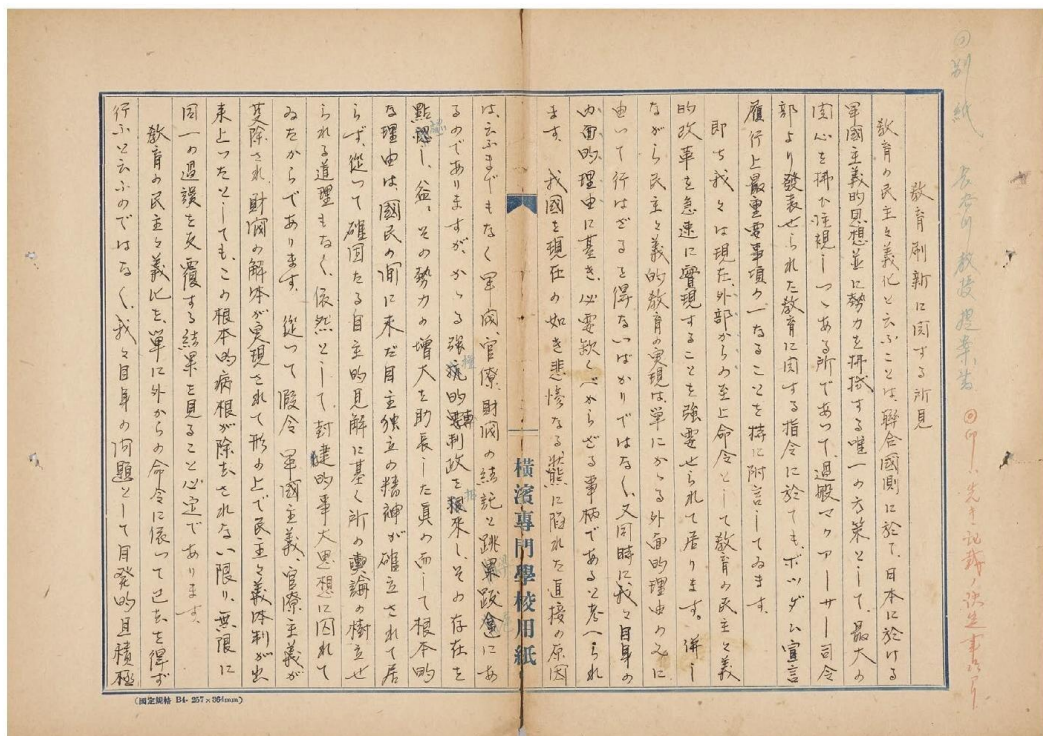 ◎別紙
長谷川教授提案
教育刷新に関する所見
教育の民主々義化と云ふことは、聯合國側に於て、日本に於ける
軍國主義的思想並に勢力を拂拭する唯一の方策として、最大の
関心を拂ひ注視しつゝある所であって、過般マクアーサー司令
部より發表せられた教育に関する指令に於ても、ポツダム宣言
履行上最重要事項の一なることを特に附言してゐます。
即ち我々は現在、外部からの至上命令として教育の民主々義
的改革を急速に實現することを強要せられて居ります。併し
ながら民主々義的教育の実現は単にかゝる外面的理由のみに
由って行はざるを得ないばかりではなく、又同時に我々自身の
内面的理由に基き、必要欠くべからざる事柄であると考へられ
ます。我國を現在の如き悲惨なる状態に陥れた直接の原因
横濱專門學校用紙
は、云ふまでもなく軍閥、官僚、財閥の結託と跳梁跋扈にあ
るのでありますが、かゝる強権的専制政を招来し、その存在を
黙認し、益々その勢力の増大を助長した真の而して根本的
な理由は、國民の間に未だ自主独立の精神が確立されて居
らず、從って確固たる自主的見解に基く所の輿論の樹立せ
られる道理もなく、依然として、封建的事大思想に囚れて
ゐたからであります。從って假令軍國主義、官僚主義が
芟除され、財閥の解体が実現されて形の上で民主々義体制が出
来上ったとしても、この根本的病根が除去されない限り、無限に
同一の過誤を反覆する結果を見ること必定であります。
教育の民主々義化を、單に外からの命令に依って已むを得ず
行ふと云ふのではなく、我々自身の問題として自発的且積極
(國定規格 B4・257×364mm)